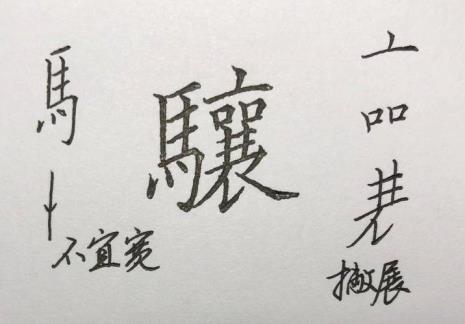 馬
不宜宽
驤
亠
口口
撇展